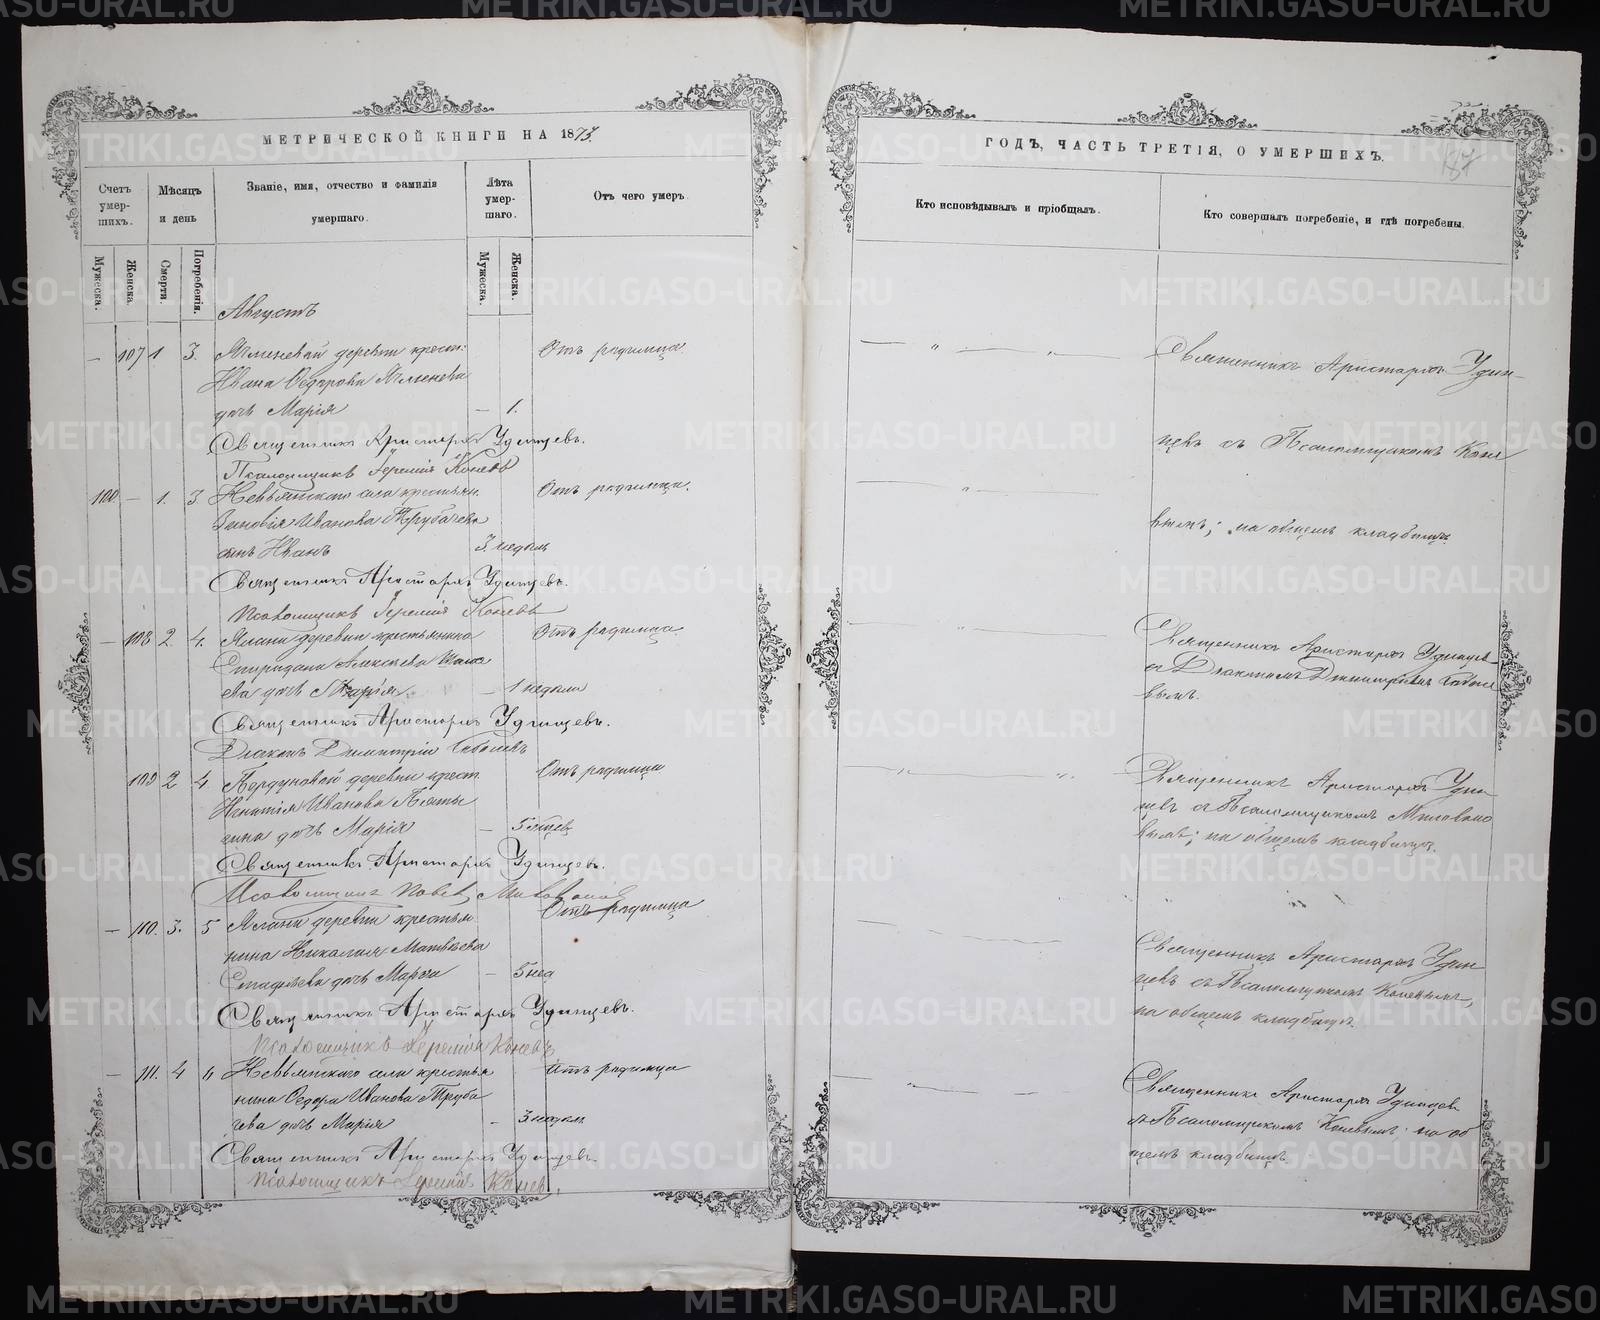 МЕТРИЧЕСКОЙ КНИГИ НА 1873.
Счетъ умер-шихъ.
Мѣсяцъ и день
Званіе, имя, отчество и фамилія умершаго.
Лѣта умер-шаго.
Отъ чего умеръ.
Мужеска.
Женска.
Смерти.
Погребенія.
Мужеска.
Женска.
Августъ
— 107 1 3. деревни крест:
Ивана Федорова
дочь Марія — 1.
Отъ родимца
Священникъ Аристархъ Удинцевъ.
Псаломщикъ Іеремій Коневъ
100 — 1. 3. Невьянскаго села крестьян.
Зиновія Иванова Трубачева
сынъ Иванъ 3 недѣль
Отъ родимца.
Священникъ Аристархъ Удинцевъ.
Псаломщикъ Іеремій Коневъ
— 108 2. 4. деревни крестьянина
Спиридона Алексѣева
ева дочь Марія. — 1 недѣли
Отъ родимца.
Священникъ Аристархъ Удинцевъ.
Діаконъ Димитрій
109 2 4 деревни крест.
Игнатія Иванова
гина дочь Марія —
Отъ родимца
Священникъ Аристархъ Удинцевъ.
Псаломщикъ
— 110. 3. 5 деревни крестьян
нина Николая Матвѣева
дочь Марія — 5 нед
Отъ родимца
Священникъ Аристархъ Удинцевъ.
Псаломщикъ Іеремій Коневъ
— 111. 4 6 Невьянскаго села крестья
нина Федора Иванова Труба
чева дочь Марія — 3 недѣль
Отъ родимца
Священникъ Аристархъ Удинцевъ.
Псаломщикъ Іеремій Коневъ.
ГОДЪ, ЧАСТЬ ТРЕТІЯ, О УМЕРШИХЪ.
87
Кто исповѣдывалъ и пріобщалъ.
Кто совершалъ погребеніе, и гдѣ погребены.
Священникъ Аристархъ Удин-
цевъ съ Псаломщикомъ Коне
вымъ; на общемъ кладбищѣ.
Священникъ Аристархъ Удинцев
съ Діакономъ Димитріемъ
вымъ.
Священникъ Аристархъ Удин
цевъ съ Псаломщикомъ Миловано
вымъ; на общемъ кладбищѣ.
Священникъ Аристархъ Удин
цевъ съ Псаломщикомъ Коневымъ,
на общемъ кладбищѣ.
Священникъ Аристархъ Удинцев
съ Псаломщикомъ Коневымъ на об
щемъ кладбищѣ.
METRIKI.GASO-URAL.RU